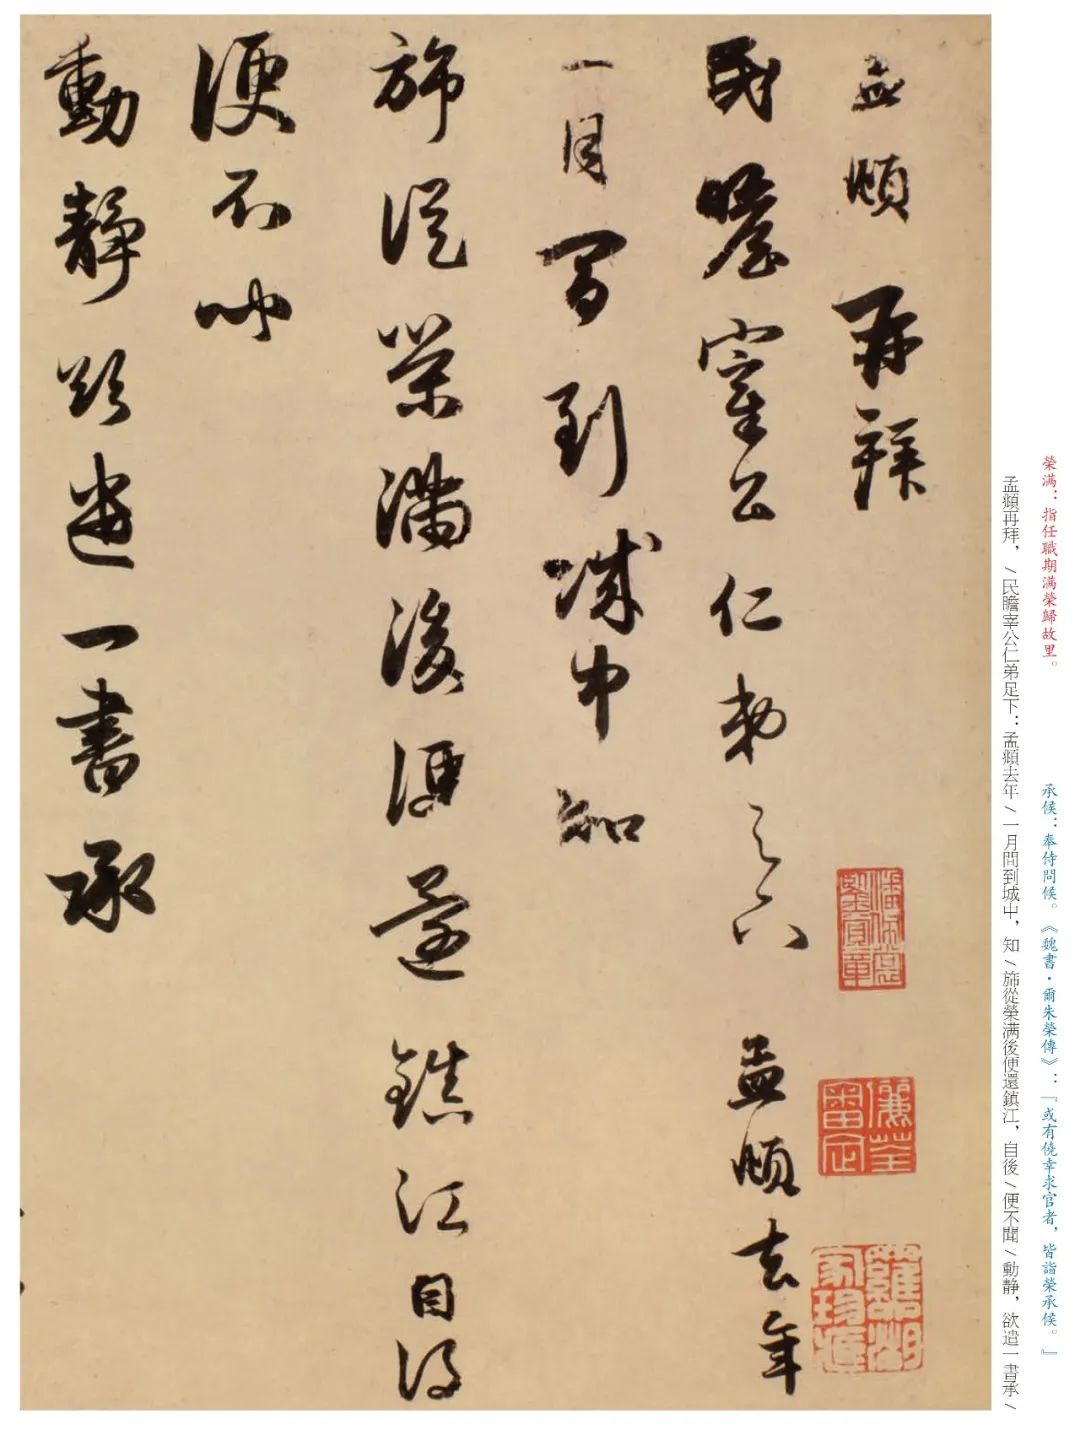 榮满：指任職期满榮歸故里。
承候：奉侍問候。《魏書·爾朱榮傳》：『或有僥幸求官者，皆詣榮承候。』
孟頫再拜，/民瞻宰公仁弟足下：孟頫去年/一月間到城中，知/旆從榮满後便還鎮江，自後/便不聞/動静，欲遣一書承/
孟頫再拜
民瞻宰公仁弟足下孟頫去年
一月間到城中知
旆從榮滿後便還鎮江自後
便不聞
動静欲遣一書承
潘佩裳鑒賞章
儷荃審定